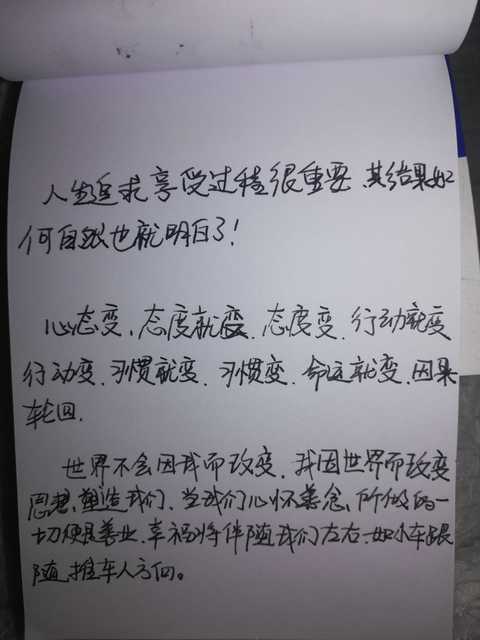 人生追求享受过程很重要 其结果如
何自然也就明白了!
心态变、态度就变、态度变、行动就变
行动变、习惯就变、习惯变、命运就变、因果
轮回.
世界不会因我而改变、我因世界而改变
思想、塑造我们、当我们心怀善念、所做的一
切便是善业、幸福将伴随我们左右、如小车跟
随、推车人方向。